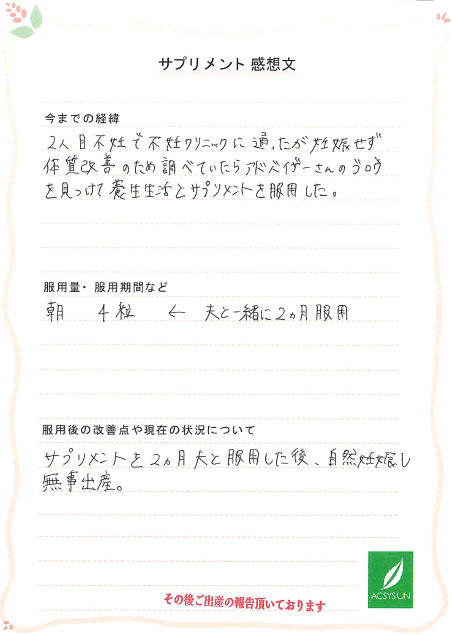 サプリメント 感想文
今までの経緯
2人目不妊で不妊クリニックに通ったが妊娠せず
体質改善のため調べていたらアドバイザーさんのブログ
を見つけて養生生活とサプリメントを服用した。
服用量・服用期間など
朝 4粒 ← 夫と一緒に2ヵ月服用
服用後の改善点や現在の状況について
サプリメントを2ヵ月夫と服用した後、自然妊娠し
無事出産。
その後ご出産の報告頂いております
ACSYSUN